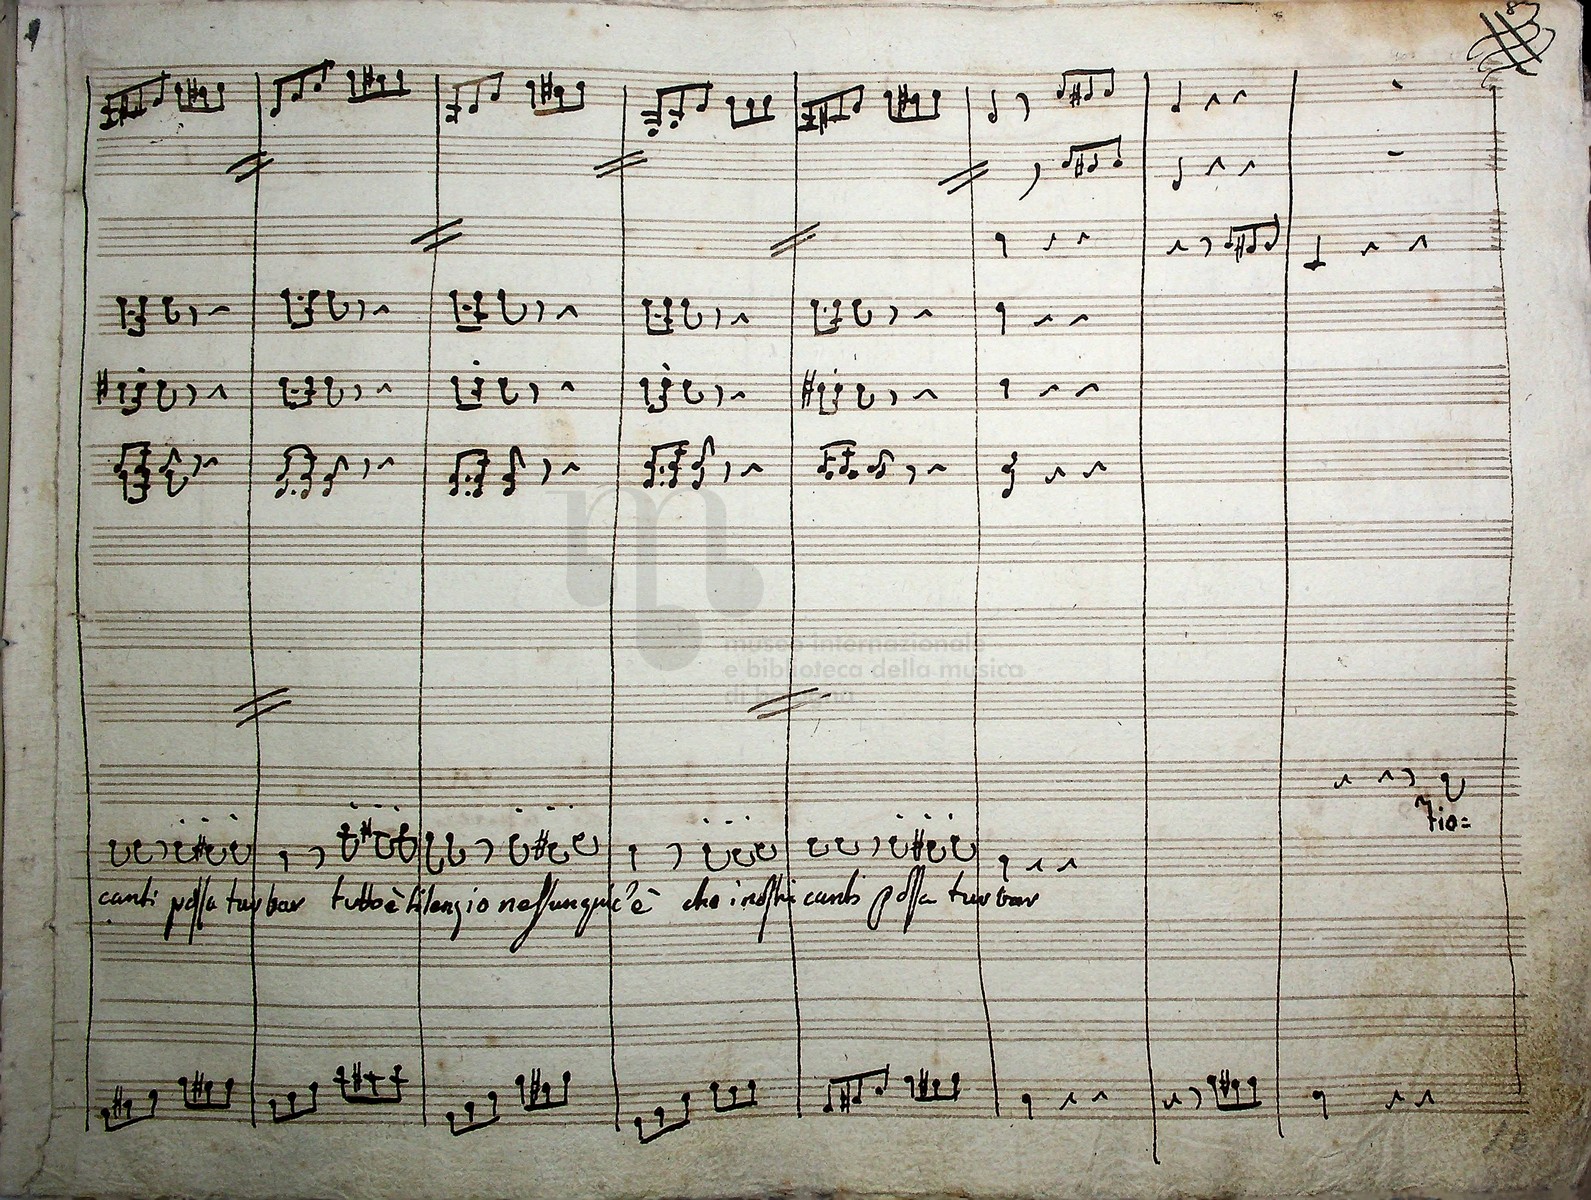 museo internazionale
e biblioteca della musica
di bologna
Fio=
canti possa turbar tutto è silenzio nessun qui c'è che i nostri canti possa turbar